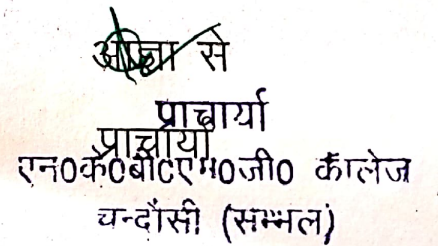 आज्ञा से
प्राचार्या
प्राचार्या
एन0के0बी0एम0जी0 कॉलेज
चन्दौसी (सम्भल)